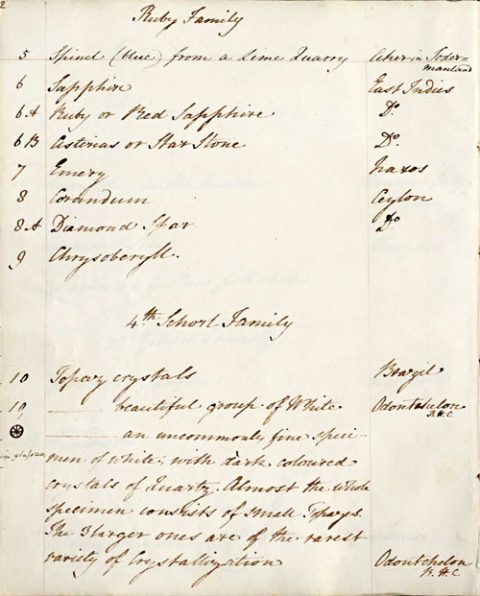 2
Ruby Family
5 Spinel (blue) from a Lime Quarry Aker in Soder=
manland
6 Sapphire East Indies
6 A Ruby or Red Sapphire Do.
6 B Asterias or Star Stone Do.
7 Emery Naxos
8 Corundum Ceylon
8 A Diamond Spar Do
9 Chrysoberyll.
4th Schorl Family
10 Topaz crystals Brazil
10, —— beautiful group of White Odontchelon
—— an uncommonly fine speci-
men of white, with dark coloured
crystals of Quartz. Almost the whole
specimen consists of small Topazes.
The 3 larger ones are of the rarest
variety of Crystallization Odontchelon